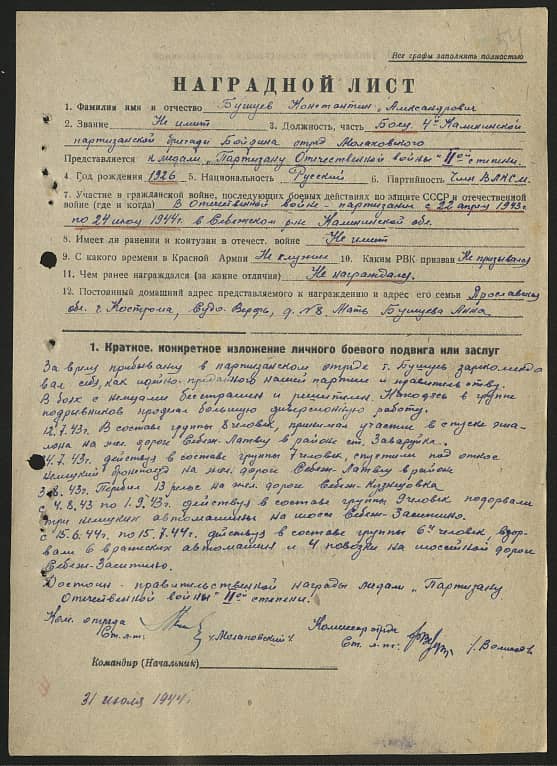 Все графы заполнять полностью
НАГРАДНОЙ ЛИСТ
1. Фамилия имя и отчество Бушуев Константин Александрович
2. Звание Не имеет 3. Должность, часть Боец 4й Калининской
партизанской бригады Бойдина отряд Молаковского
Представляется к медали "Партизану Отечественной войны" IIой степени.
4. Год рождения 1926 5. Национальность Русский 6. Партийность Член ВЛКСМ.
7. Участие в гражданской войне, последующих боевых действиях по защите СССР и отечественной
войне (где и когда) В Отечественной войне - партизаном с 22 апреля 1943г
по 24 июля 1944г. в Себежском р-не Калининской обл.
8. Имеет ли ранения и контузии в отечест. войне Не имеет
9. С какого времени в Красной Армии Не служил 10. Каким РВК призван Не призывался
11. Чем ранее награждался (за какие отличия) Не награждался.
12. Постоянный домашний адрес представляемого к награждению и адрес его семьи Ярославская
обл. г. Кострома, Судо. Верфь, д. №8. Мать Бушуева Анна.
1. Краткое, конкретное изложение личного боевого подвига или заслуг
За время пребывания в партизанском отряде т. Бушуев зарекомендо
вал себя, как идейно-преданного нашей партии и правительству.
В боях с немцами бесстрашен и решителен. Находясь в группе
подрывников проделал большую диверсионную работу.
12.7.43г. В составе группы 8 человек, принимал участие в спуске эша-
лона на жел. дороге Себеж-Латвия в районе ст. Заваруйка.
4.7.43г. действуя в составе группы 7 человек, спустили под откос
немецкий бронепоезд на жел. дороге Себеж-Латвия в районе
3.8.43г. Перебил 13 рельс на жел. дороге Себеж-Кузнецовка
с 4.8.43 по 1.9.43г. действуя в составе группы 9 человек подорвали
три немецких автомашины на шоссе Себеж-Заситино.
с 15.6.44г. по 15.7.44г. действуя в составе группы 6и человек, взор-
вали 6 вражеских автомашин и 4 повозки на шоссейной дороге
Себеж-Заситино.
Достоин - правительственной награды медали "Партизану
Отечественной войны" IIой степени.
Ком. отряда
Ст. л-т. /Молаковский/.
Комиссар отряда
Ст. л-т.
Командир (Начальник)
31 июля 1944г.